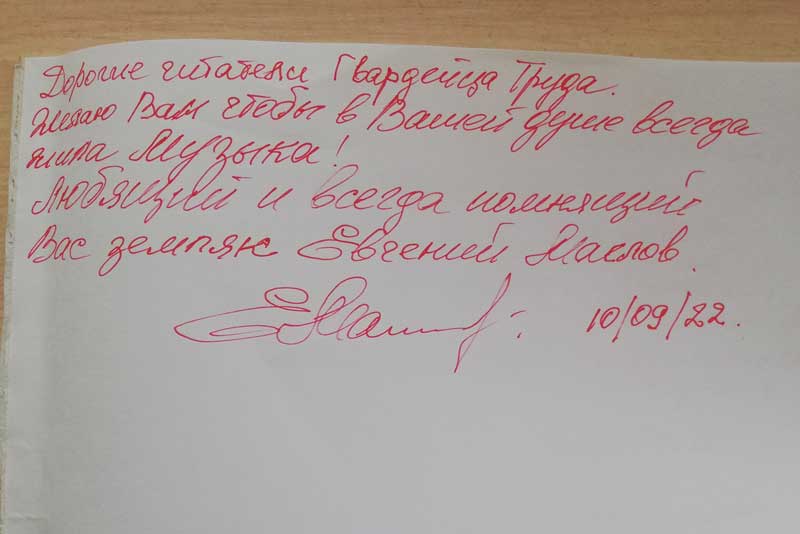 Дорогие читатели Гвардейца Труда.
Желаю Вам чтобы в Вашей душе всегда
жила Музыка!
Любящий и всегда помнящий
Вас земляк Евгений Маслов.
10/09/22.